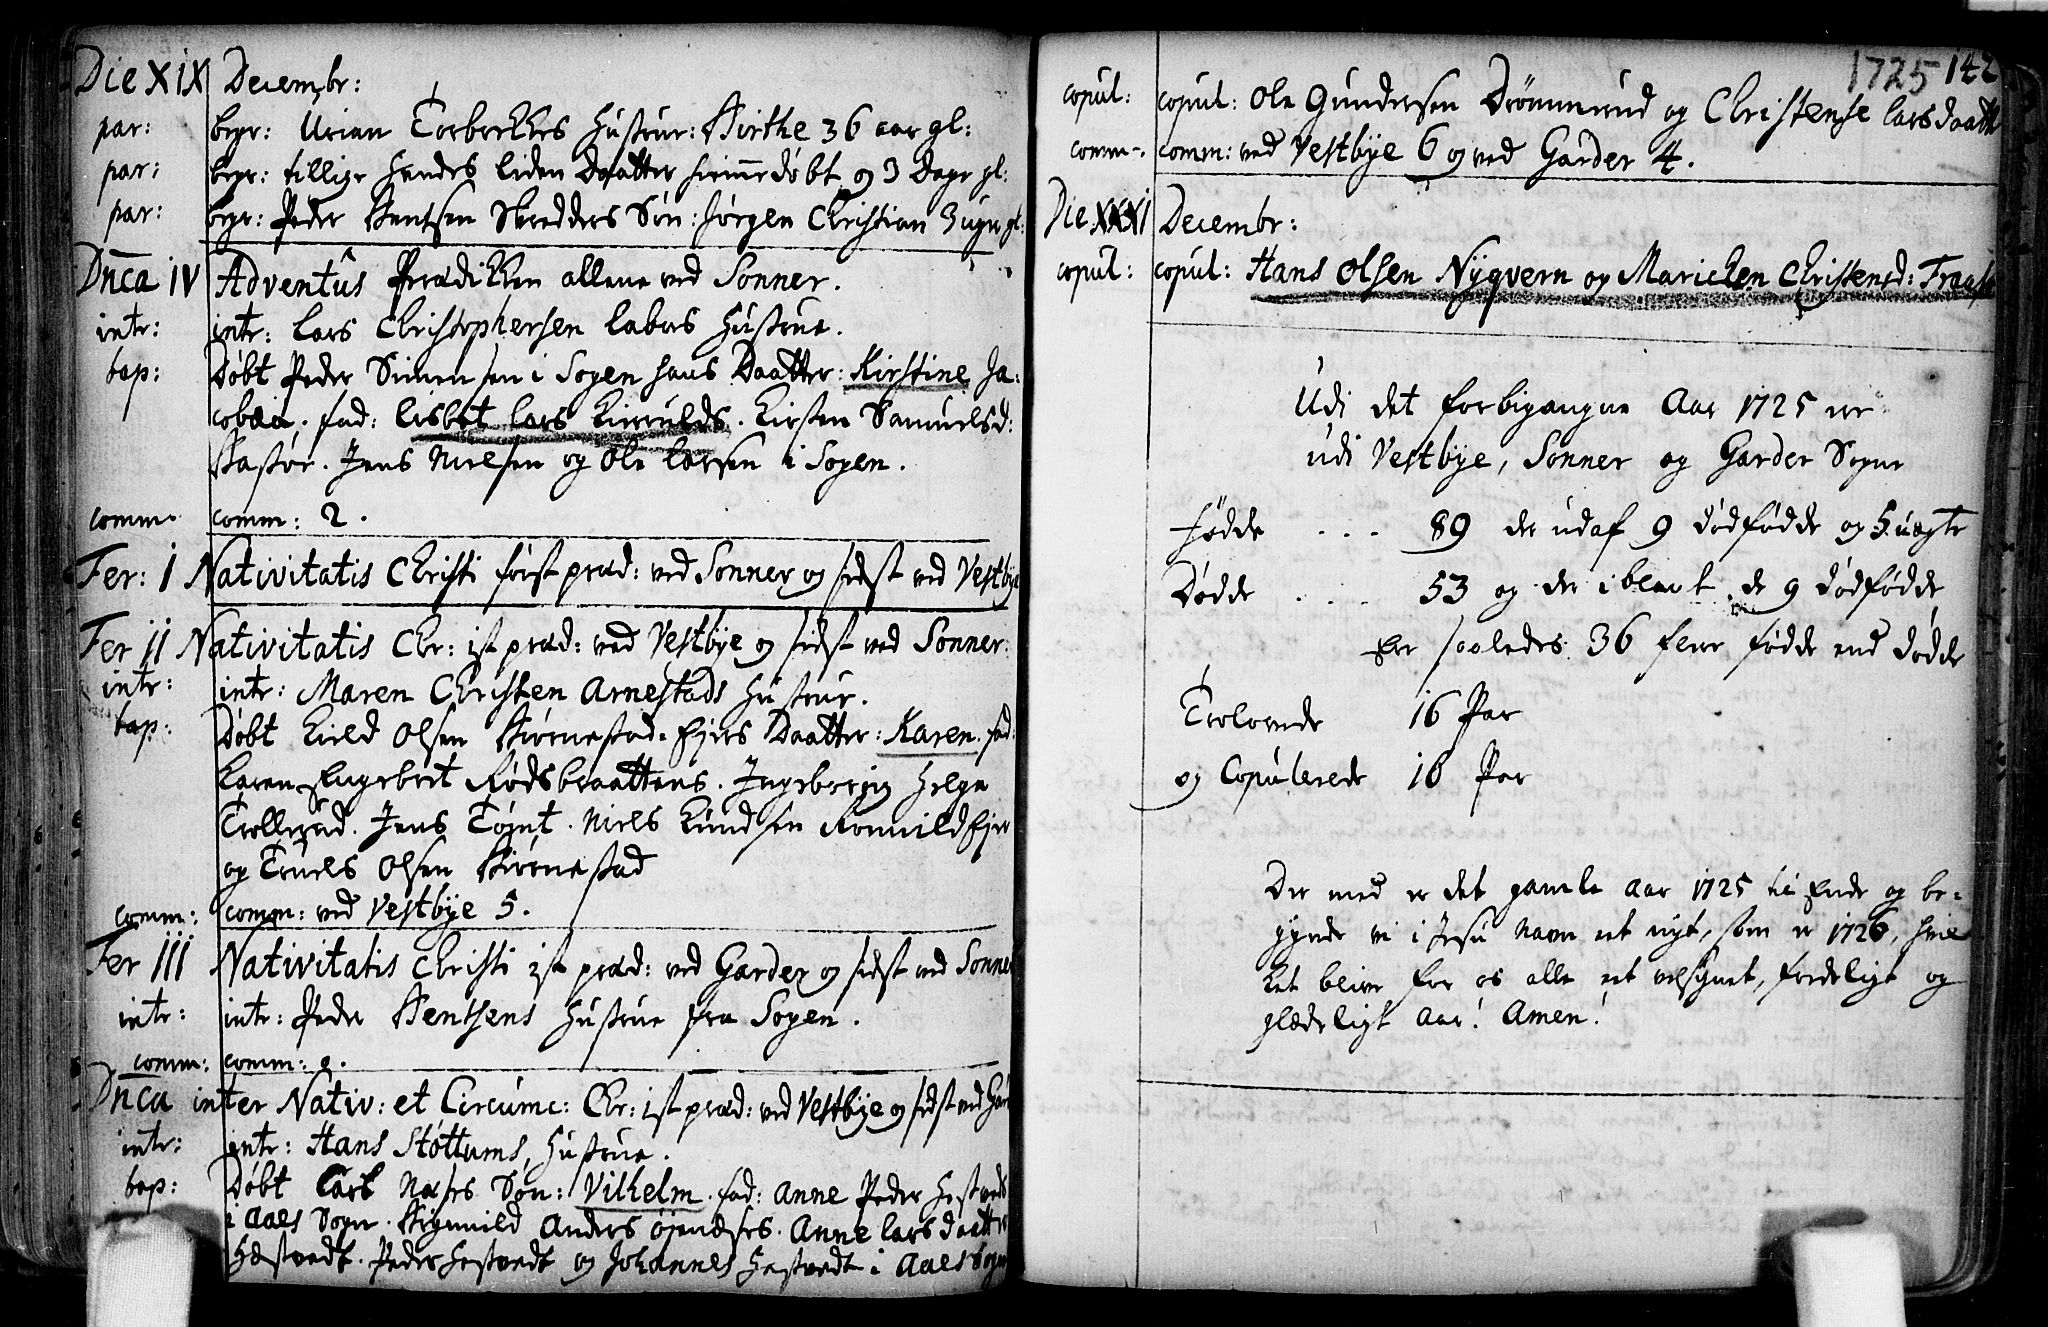 Die XIX Decembr:
par: begr: Urian Torbechers Hustrue: Birthe 36 aar gl:
par: begr: tillige hendes liden Daatter hiemmedøbt og 3 Dage gl:
par: begr: Peder Bentsen Skredders Søn: Jørgen Christian 3 uger gl:
Dnca IV Adventus Prædicken allene ved Sonner.
intr: intr: Lars Christophersen Labos Hustrue.
bap: Døbt Peder Simensen i Sogen hans Daatter: Kirstine Ja-
cobæa. fad: Lisbet Lars . Kirsten Samuelsd:
. Jens Nielsen og Ole Larsen i Sogen.
comm. comm: 2.
Fer: I Nativitatis Christi først præd: ved Sonner og sidst ved Vestbye
Fer II Nativitatis Chr: 1st præd: ved Vestbye og sidst ved Sonner.
intr: intr: Maren Christen Arnestads Hustrue.
bap: Døbt Kield Olsen Kiørnestad-Eiers Daatter: Karen. fad:
Karen Engebret Rødsbraattens. Ingeborg Helge
Trollerød. Jens Tømt. Niels Knudsen Romvild Eier
og Truels Olsen Kiørnestad
comm: comm: ved Vestbye 5.
Fer III Nativitatis Christi 1st præd: ved Garder og sidst ved Sonner
intr: intr: Peder Bentsens Hustrue fra Sogen.
comm: comm: 2.
Dnca inter Nativ: et Circumc: Chr: 1st præd: ved Vestbye og sidst ved Gard
intr: intr: Hans Støttums Hustrue.
bap: Døbt Lars Næses Søn: Vilhelm. fad: Anne Peder Hestvedt
i Aaes Sogn. Anders . Anne Larsdaatter
Hæstvedt. Peder Hestvedt og Johannes Hestvedt i Aaes Sogn
1725 142
copul: copul: Ole Gundersen Drømmerud og Christense Larsdaatt
comm: comm: ved Vestbye 6 og ved Garder 4.
Die XXXI Decembr:
copul: copul: Hans Olsen Nyqvern og Marichen Christensd: Traas
Udi det forbigangne Aar 1725 ere
udi Vestbye, Sonner og Garder Sogne
Fødde . . . 89 der udaf 9 dødfødde og 5 uægte
Dødde . . . 53 og der iblant de 9 dødfødde
Er saaledes 36 flere fødde end dødde
Trolovede 16 Par
og Copulerede 18 Par
Der med er det gamle Aar 1725 til Ende og be-
gynde vi i Jesu Navn et nyt, som er 1726, hvil
ket blive for os alle et velsignet, fredeligt og
glædeligt Aar! Amen!